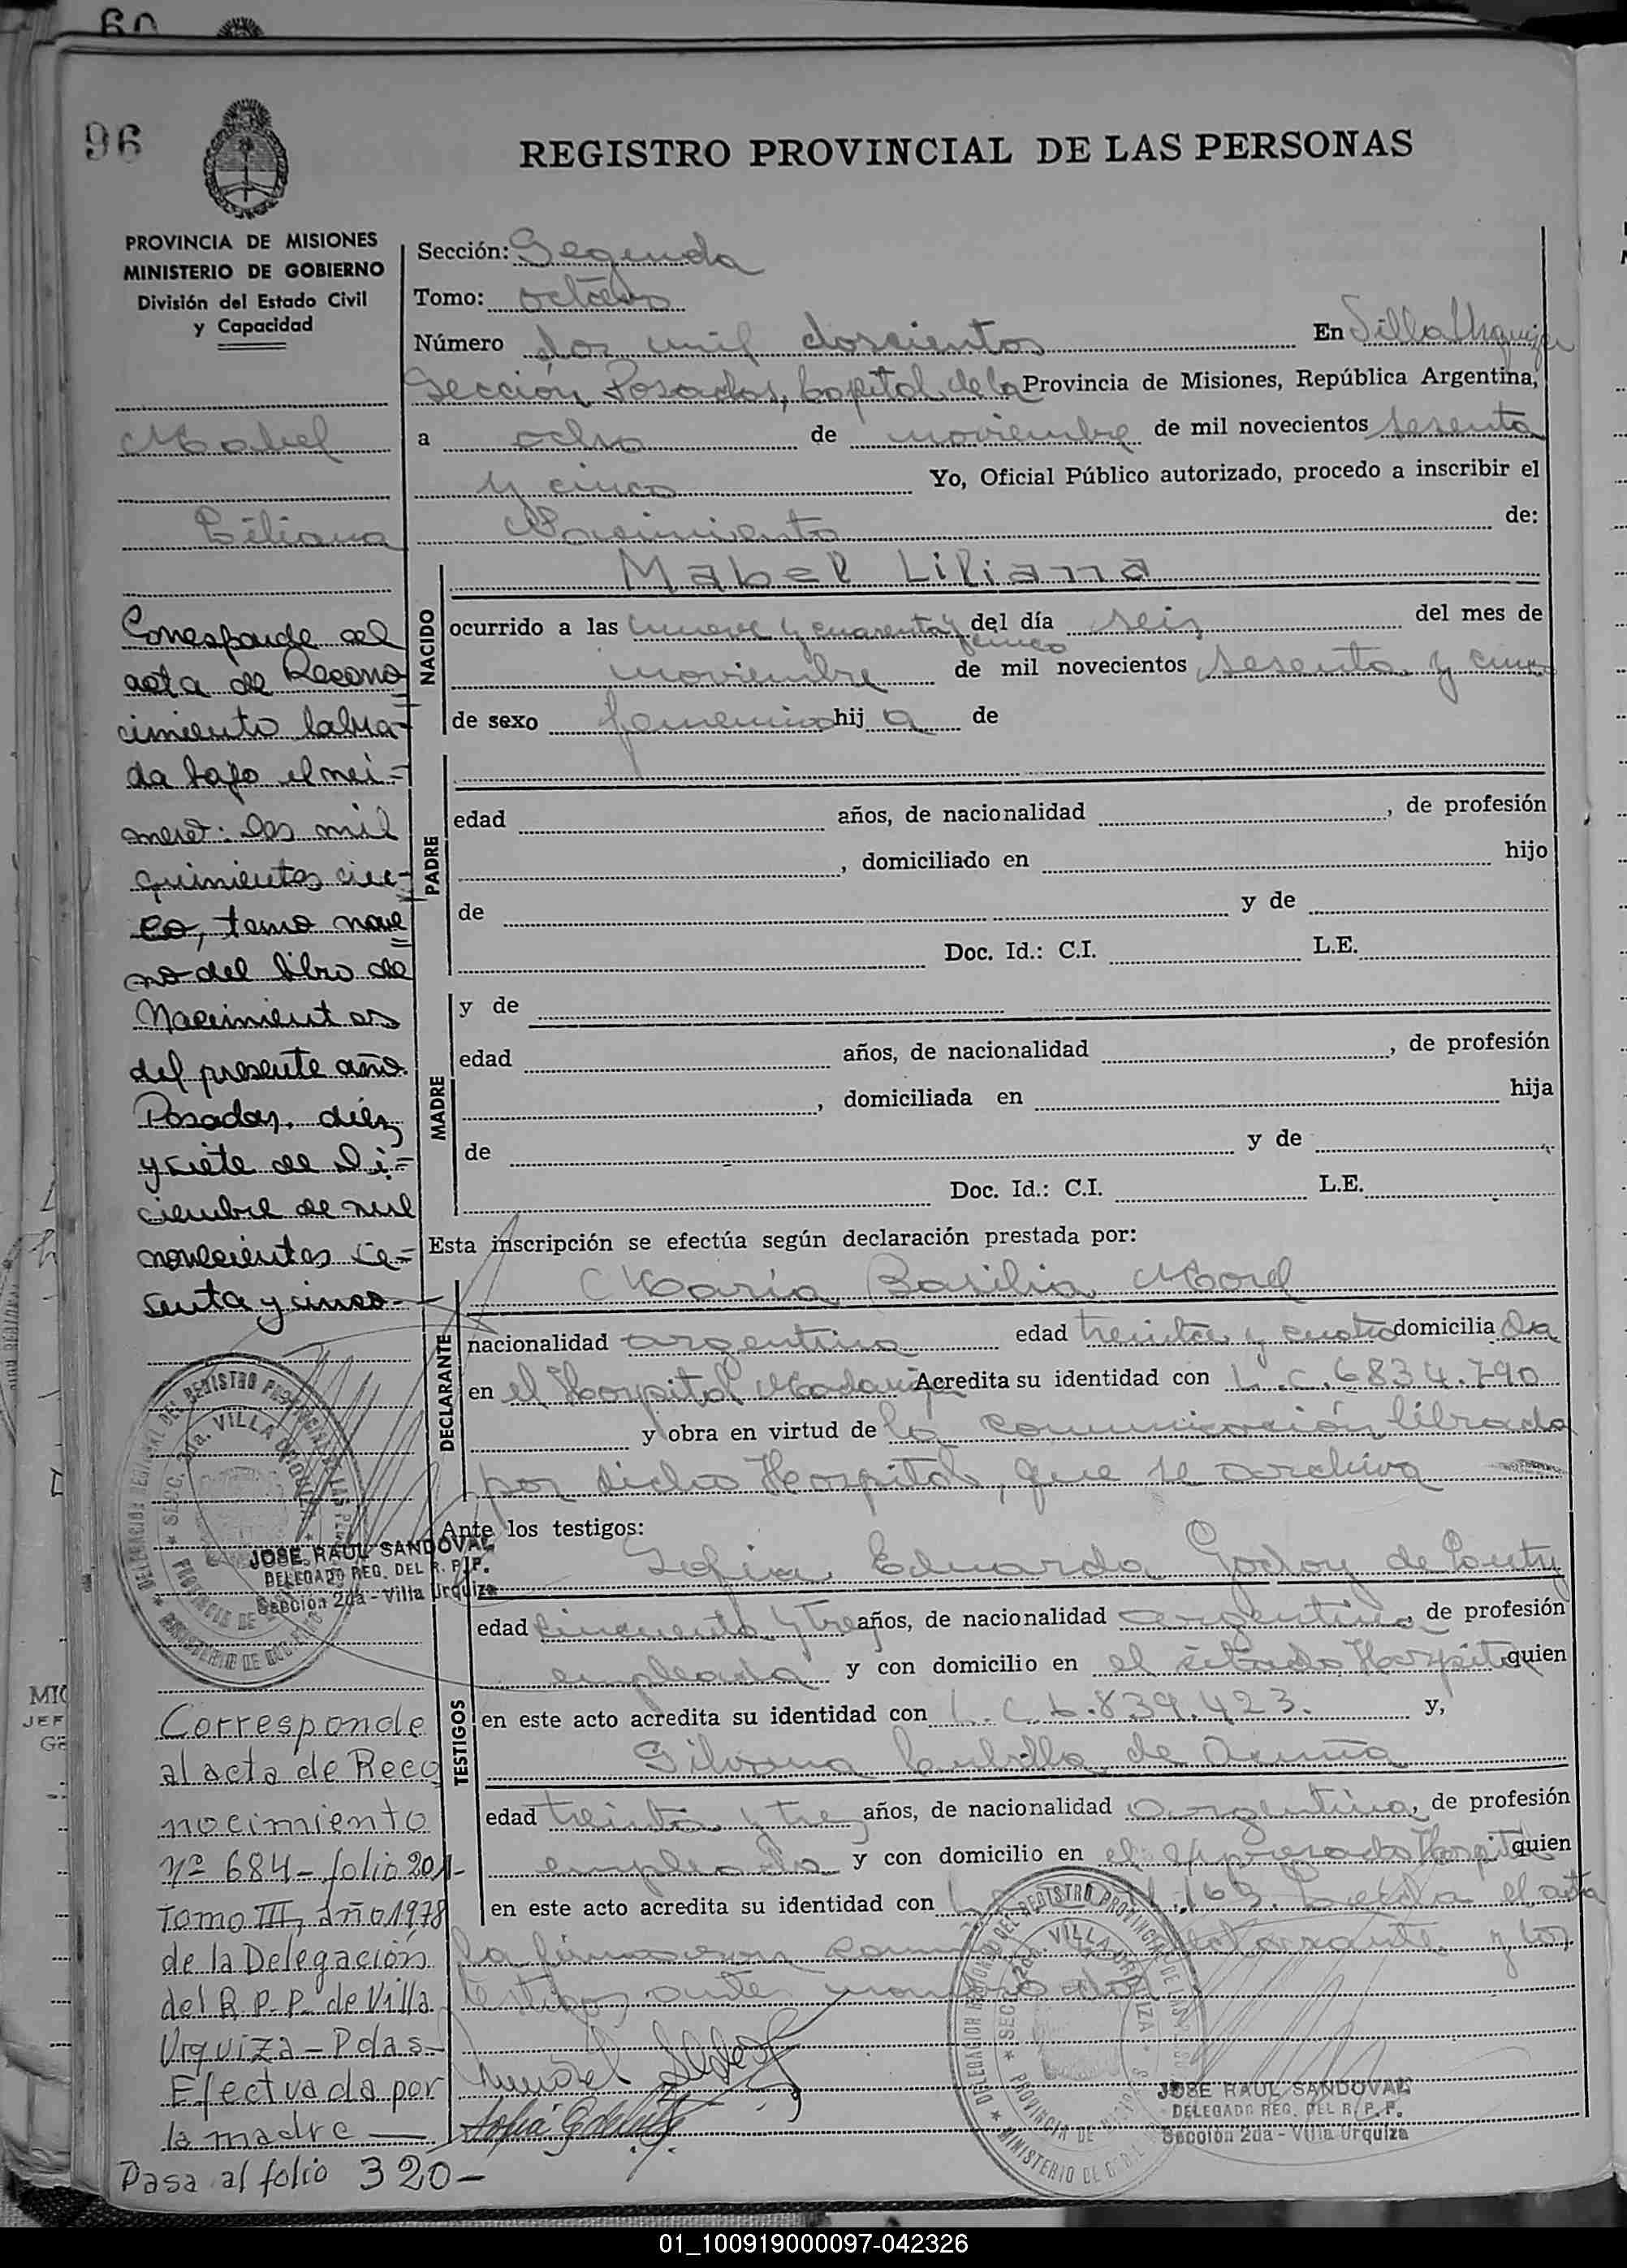 60
96
REGISTRO PROVINCIAL DE LAS PERSONAS
PROVINCIA DE MISIONES
MINISTERIO DE GOBIERNO
División del Estado Civil
y Capacidad
Mabel
Liliana
Corresponde al
acta de Recono
cimiento labra-
da bajo el nú-
mero: dos mil
quinientos cin-
co, tomo nove
no del libro de
Nacimientos
del presente año.
Posadas, diez
y siete de Di-
ciembre de mil
novecientos se-
senta y cinco.-
JOSE RAUL SANDOVAL
DELEGADO REG. DEL R. P. P.
Sección 2da - Villa Urquiza
Corresponde
al acta de Reco
nocimiento
Nº 684 - folio 201-
Tomo III, año 1978
de la Delegación
del R.P.P. de Villa
Urquiza - Pdas-
Efectuada por
la madre —
Pasa al folio 320-
Sección: Segunda
Tomo: octavo
Número dos mil doscientos En Villa Urquiza
Sección Posadas, Capital de la Provincia de Misiones, República Argentina,
a ocho de noviembre de mil novecientos sesenta
y cinco Yo, Oficial Público autorizado, procedo a inscribir el
Nacimiento de:
NACIDO
Mabel Liliana
ocurrido a las nueve y cuarenta y cinco del día seis del mes de
noviembre de mil novecientos sesenta y cinco
de sexo femenino hij a de
PADRE
edad años, de nacionalidad , de profesión
, domiciliado en hijo
de y de
Doc. Id.: C.I. L.E.
MADRE
y de
edad años, de nacionalidad , de profesión
, domiciliada en hija
de y de
Doc. Id.: C.I. L.E.
Esta inscripción se efectúa según declaración prestada por:
DECLARANTE
María Basilia Morel
nacionalidad argentina edad treinta y cuatro domicilia da
en el Hospital Madariaga Acredita su identidad con L.C. 6834.790
y obra en virtud de la comunicación librada
por dicho Hospital, que se archiva
Ante los testigos:
TESTIGOS
Sofia Eduarda Godoy de
edad cincuenta y tres años, de nacionalidad argentina, de profesión
empleada y con domicilio en el citado Hospital quien
en este acto acredita su identidad con L.C. 6.839.423. y,
Silvana Cubilla de Acuña
edad treinta y tres años, de nacionalidad argentina, de profesión
empleada y con domicilio en el expresado Hospital quien
en este acto acredita su identidad con 163. Leida el acta
la firmaron la declarante y los
testigos ante
JOSE RAUL SANDOVAL
DELEGADO REG. DEL R. P. P.
Sección 2da - Villa Urquiza
01_100919000097-042326